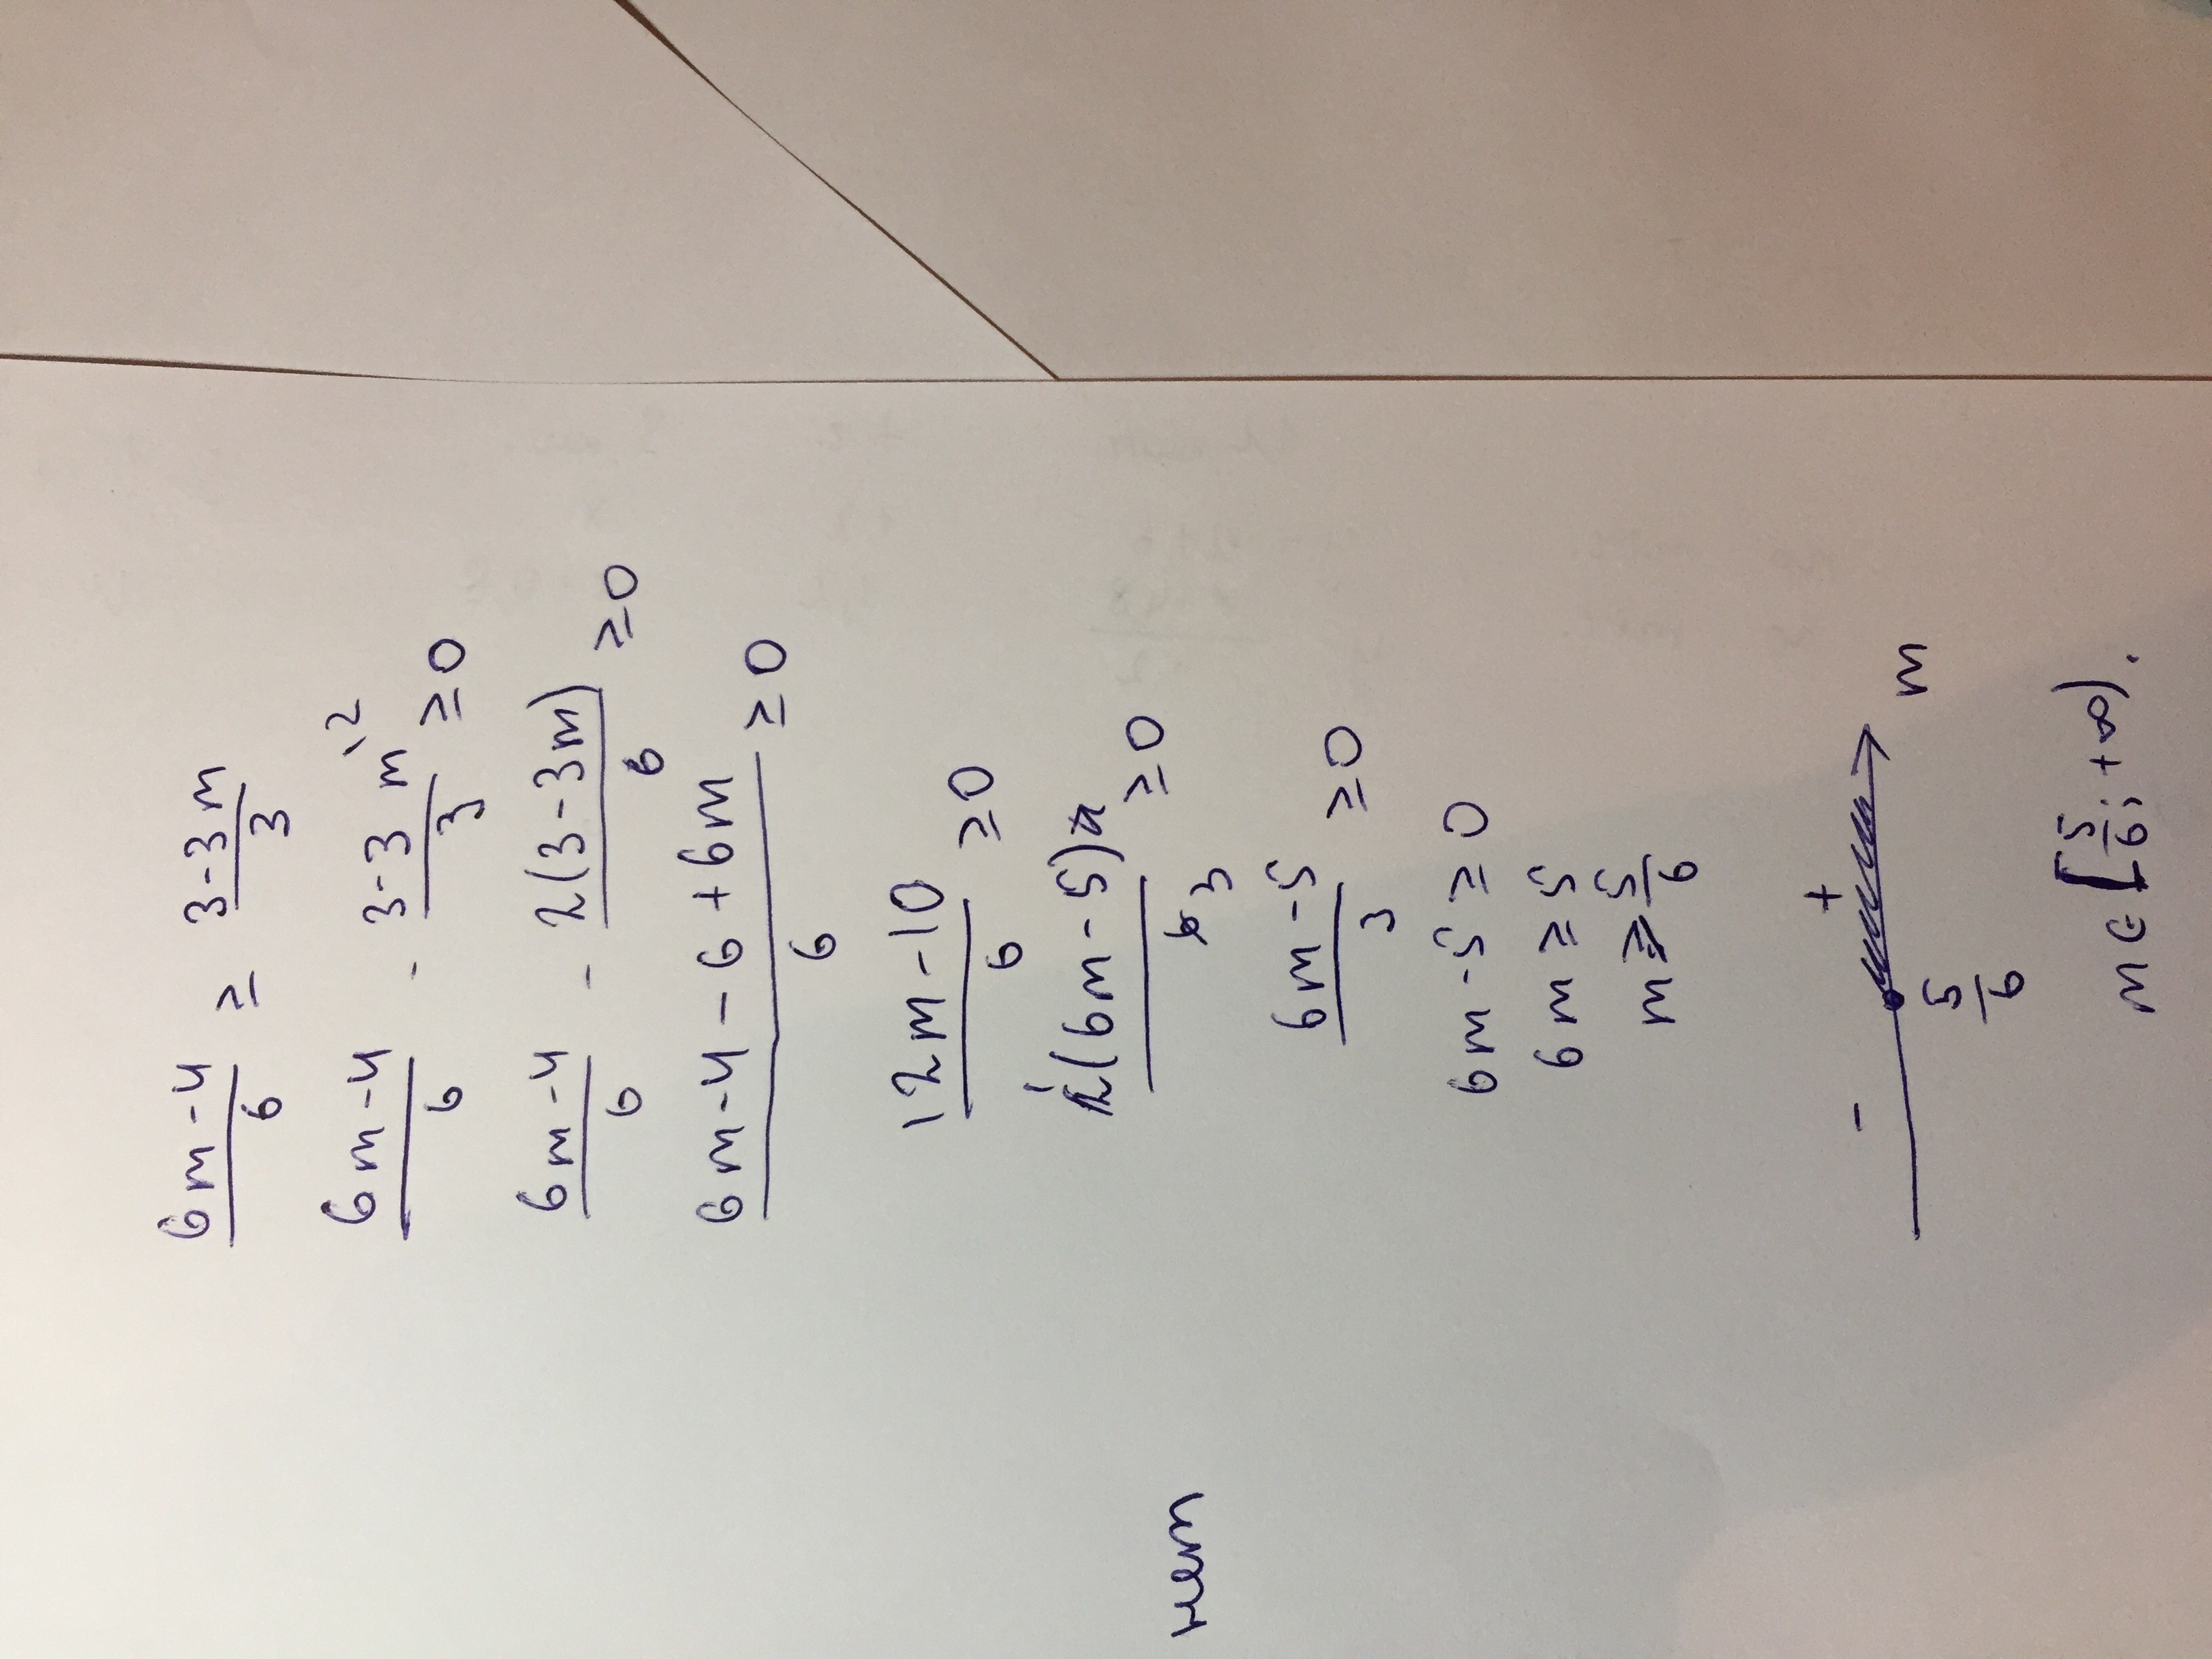 6m-4/6 ≥ 3-3m/3
6m-4/6 - 3-3m\2/3 ≥0
6m-4/6 - 2(3-3m)/6 ≥0
6m-4-6+6m/6 ≥0
12m-10/6 ≥0
2(6m-5)/6 3 ≥0
6m-5/3 ≥0
6m-5≥0
6m≥5
m≥5/6
- + m
5/6
m∈[5/6; +∞).